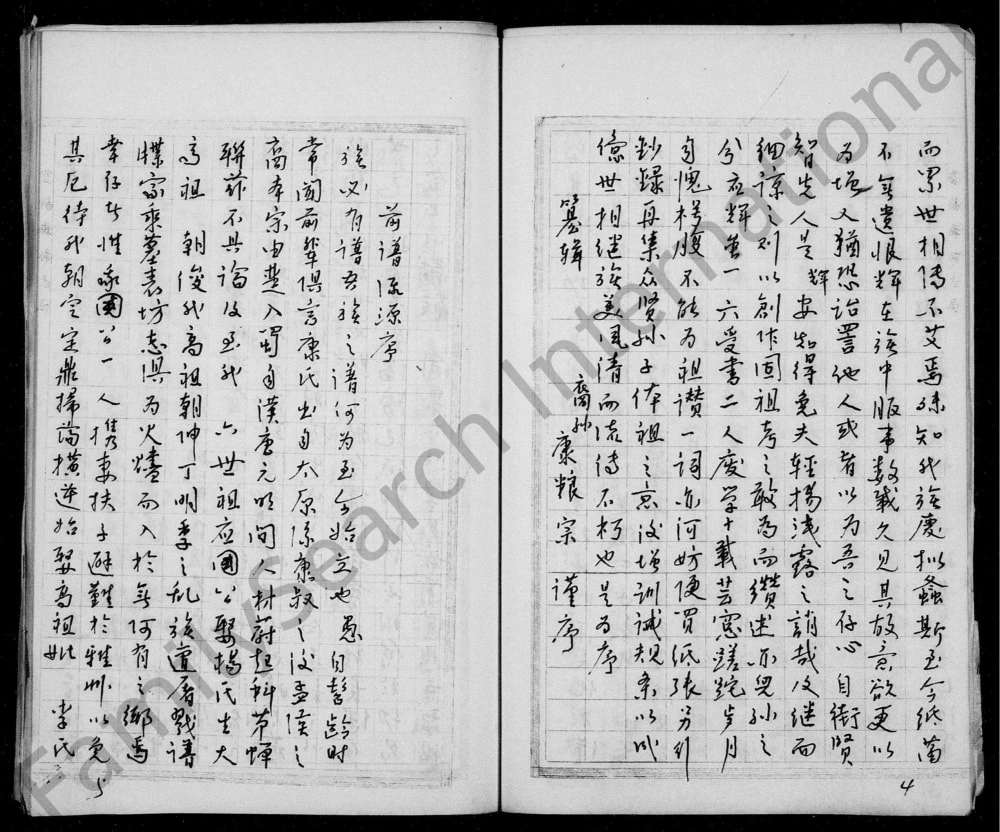 而累世相传不艾焉殊知我族庆拟螽斯至今纸蔺
不无遗恨辉在族中服事数载久见其故意欲更以
为增又犹恐诒詈他人或者以为吾之存心自衒贤
智先人是辉安知得免夫轻扬浅露之诮哉及继而
细谅之则以创作固祖考之敢为而缵述亦児孙之
分衣辉 一六受书二人废学十载芸窓蹉跎岁月
自愧 腹不能为祖讃一词亦何妨便買纸张另行
鈔錄再集众贤孙子体祖之意设增训诫规条以
億世相继族美風清而流传不朽也是为序
裔孙 康粮宗 谨序
纂辑
前谱源源序
族必有谱吾族之谱何为至今始立也愚自髫龄时
常闻前辈俱言康氏出自太原係康叔之後孟侯之
裔本宗由楚入蜀自漢唐元明间人材蔚起科第蝉
聯 不具論及至我六世祖应國公娶楊氏生大
高祖朝俊我高祖朝坤丁明季之乱族遭屠戮谱
牒家乘墓表坊志俱为火燼而入於無何有之鄉焉
幸存者惟 國公一人携妻扶子避難於雅州以免
其厄待我朝定鼎掃蕩横逆始娶高祖妣李氏
4
5
FamilySearch International